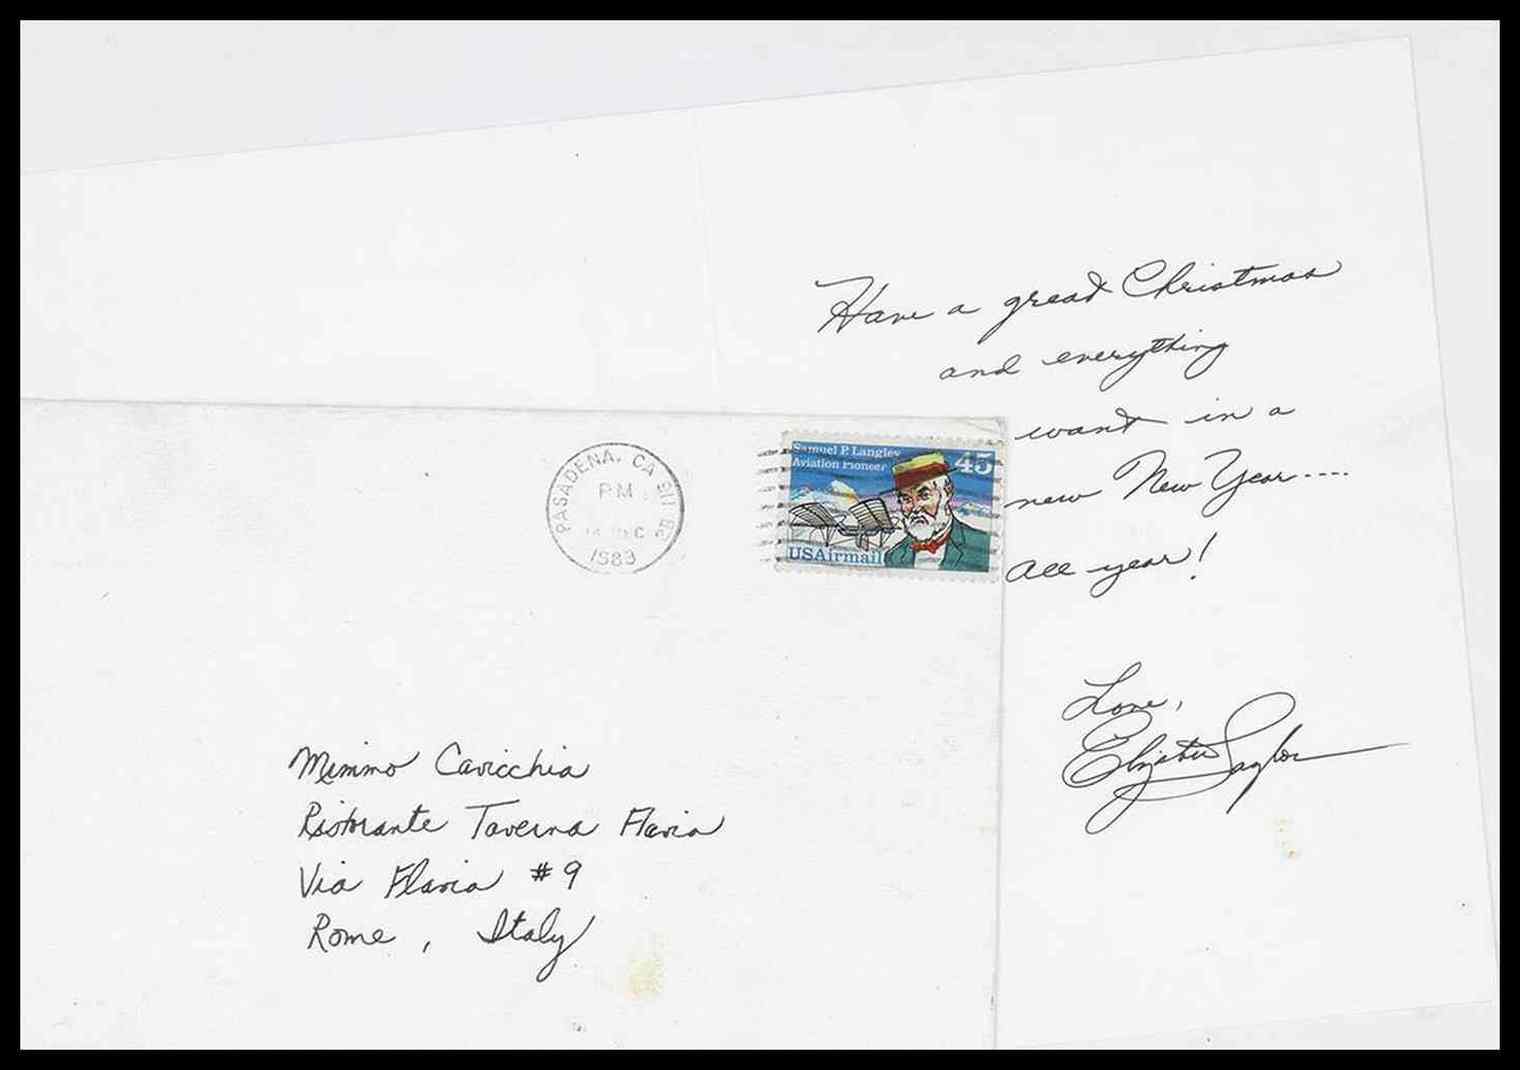 Have a great Christmas
and everything
want in a
new New Year----
all year!
Love,
Elizabeth Taylor
PASADENA, CA 911
PM
14 DEC
1989
Samuel P. Langley
Aviation Pioneer
45
USAirmail
Mimmo Cavicchia
Ristorante Taverna Flavia
Via Flavia #9
Rome, Italy